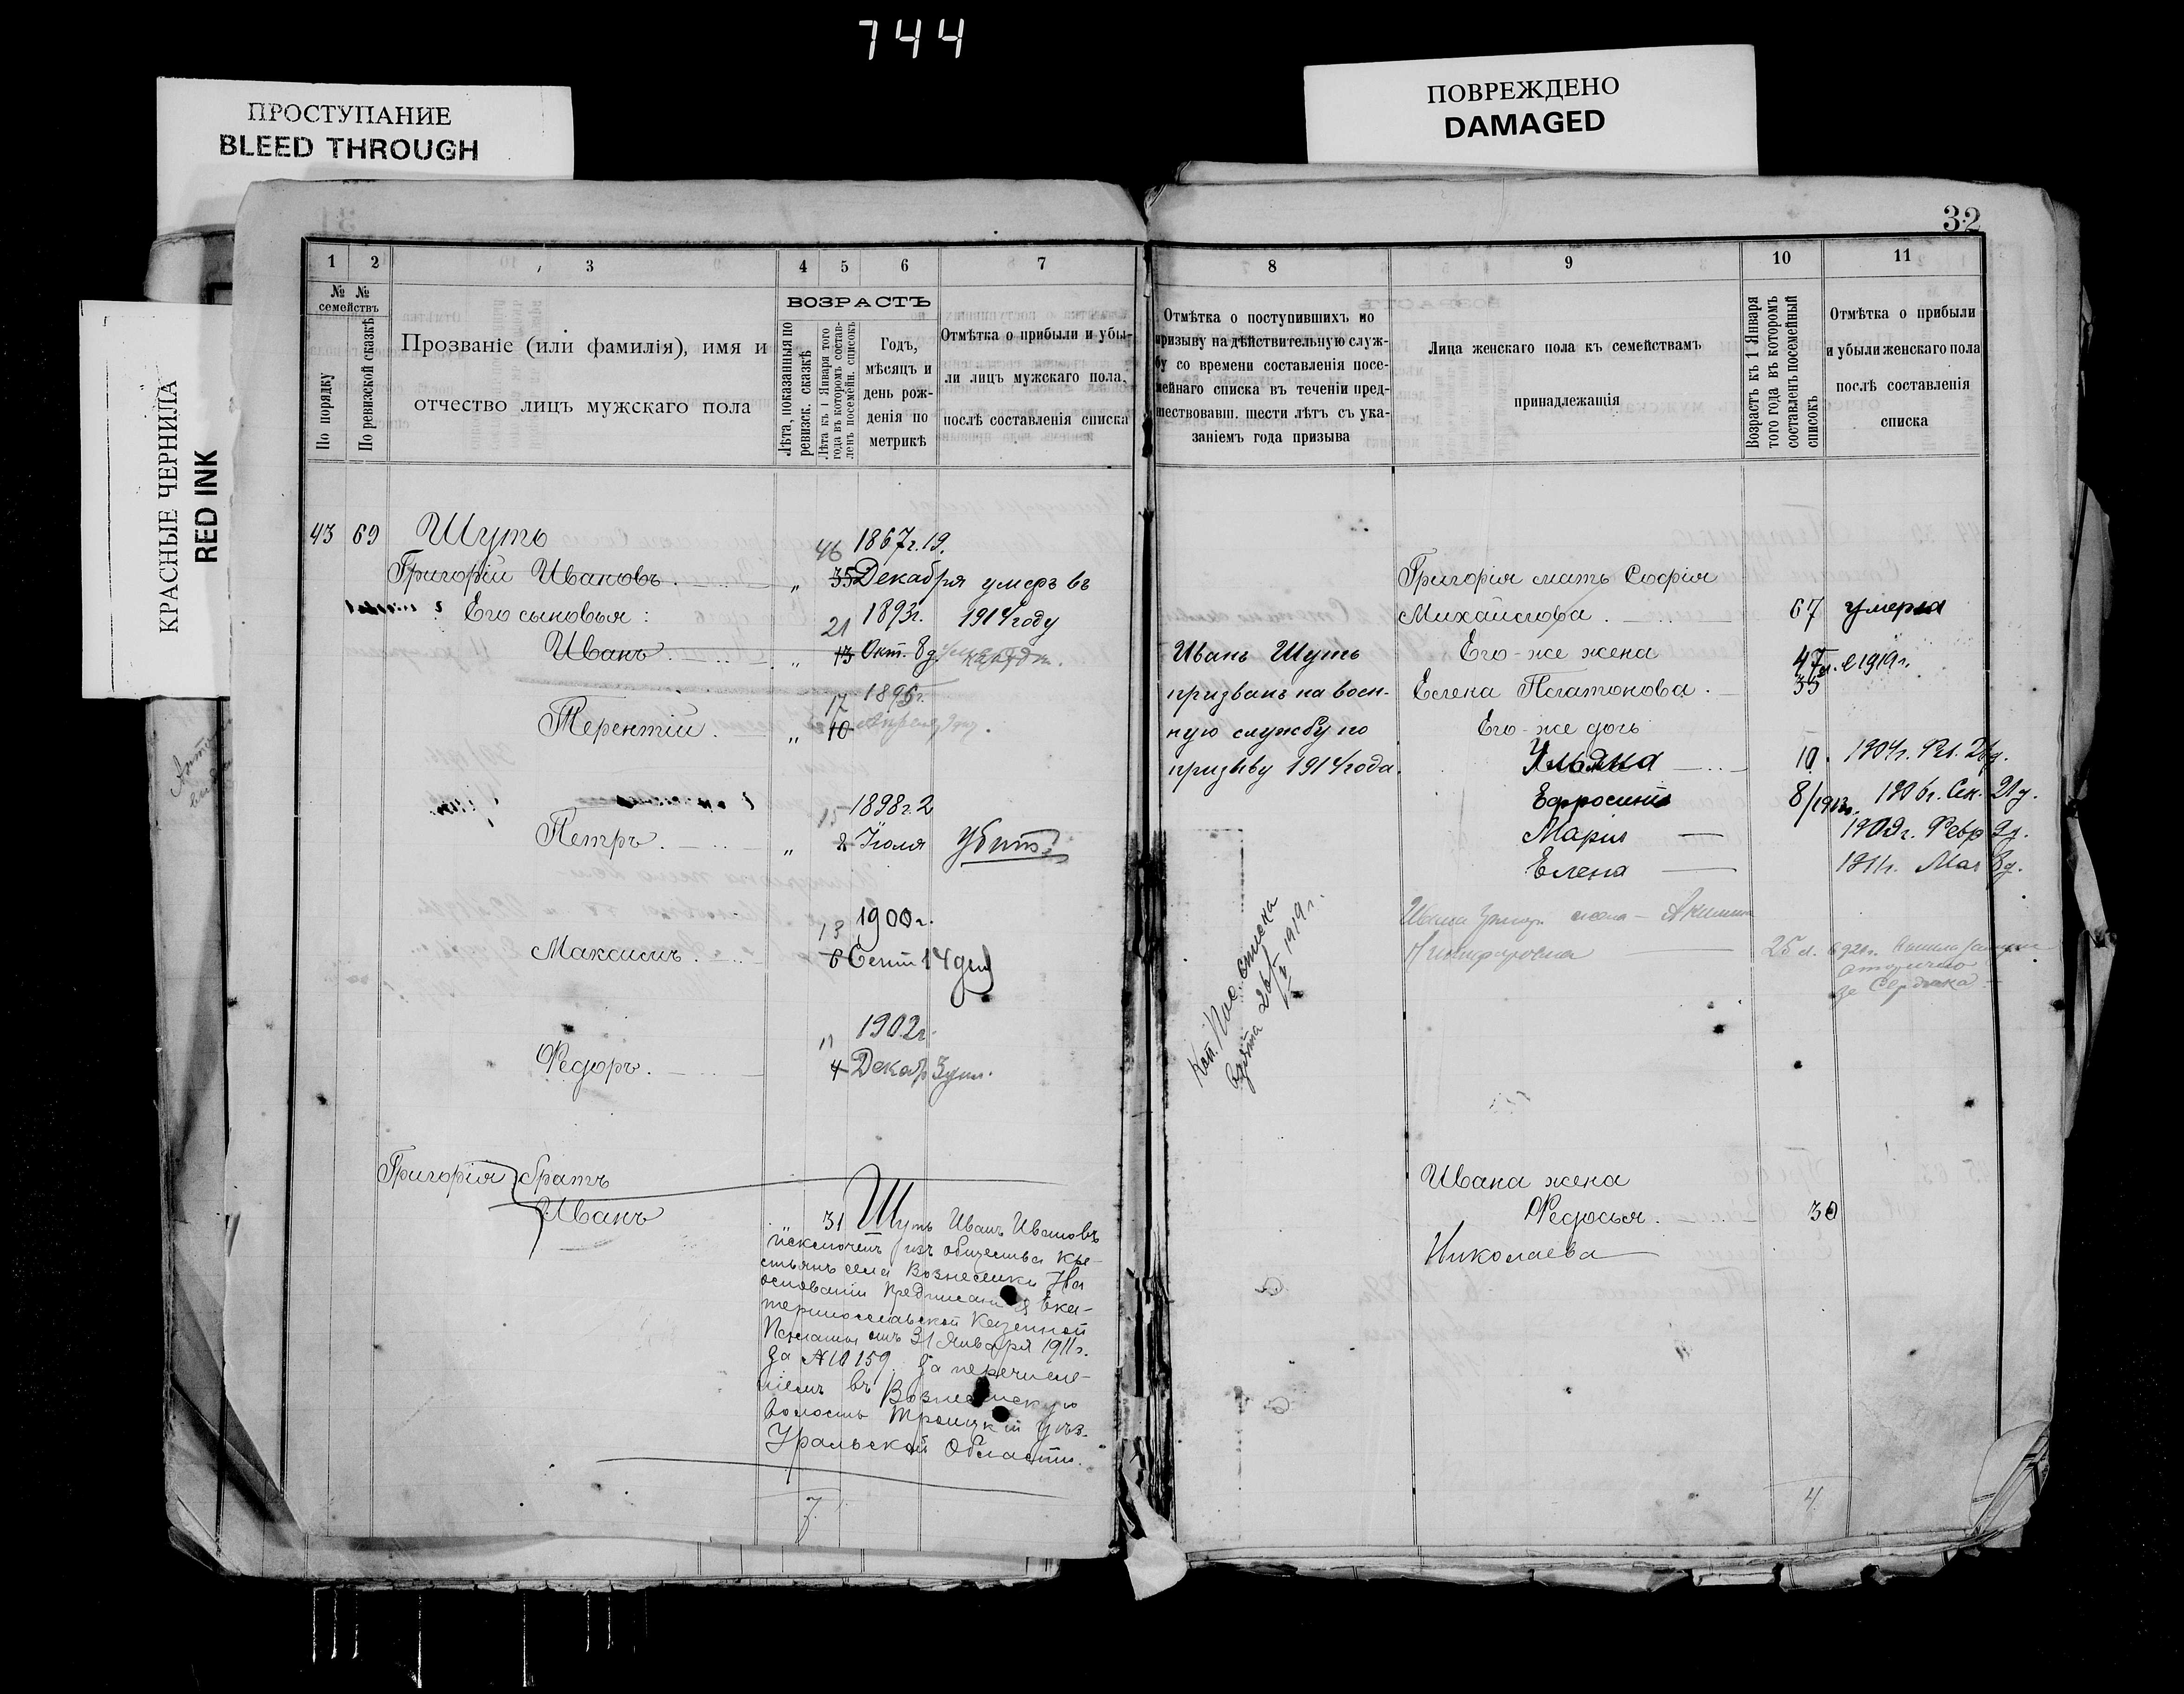 744
ПРОСТУПАНИЕ
BLEED THROUGH
ПОВРЕЖДЕНО
DAMAGED
КРАСНЫЕ ЧЕРНИЛА
RED INK
32
1 2 3 4 5 6 7
№ №
семействъ
По порядку
По ревизской сказкѣ
Прозваніе (или фамилія), имя и
отчество лицъ мужскаго пола
ВОЗРАСТЪ
Лѣта, показанныя по
ревизск. сказкѣ
Лѣта къ 1 Января того
года въ которомъ состав-
ленъ посемейн. списокъ
Годъ,
мѣсяцъ и
день рож-
денія по
метрикѣ
Отмѣтка о прибыли и убы-
ли лицъ мужскаго пола,
послѣ составленія списка
43 69 Шуть
46 1867г. 19.
Григорій Ивановъ. " 35 Декабря умеръ въ
Его сыновья: 1893г. 1914 году
21
Иванъ. " 13 Окт. 8 д.
17 1895г.
Терентій. " 10
15 1898г. 2
Петръ. " 8 Іюля убитъ
13 1900г.
Максимъ. 6 Сент 14 дня
11 1902г.
Федоръ. 4 Декаб 3 дня.
Григорія братъ
Иванъ
" 31 Шуть Иванъ Ивановъ
исключенъ изъ общества кре-
стьянъ села Вознесенки На
основаніи предписанія Ека-
теринославской Казенной
Палаты отъ 31 Января 1911г.
За № 10159 за перечисле-
ніемъ въ Вознесенскую
волость Троицкій уѣз.
Уральской Области.
7
8 9 10 11
Отмѣтка о поступившихъ по
призыву на дѣйствительную служ-
бу со времени составленія посе-
мейнаго списка въ теченіи пред-
шествовавш. шести лѣтъ съ ука-
заніемъ года призыва
Лица женскаго пола къ семействамъ
принадлежащія
Возрастъ къ 1 Января
того года въ которомъ
составленъ посемейный
списокъ
Отмѣтка о прибыли
и убыли женскаго пола
послѣ составленія
списка
Григорія мать Софія
Михайлова. 67 умерла
Иванъ Шуть
призванъ на воен-
ную службу по
призыву 1914 года.
Его-же жена
47 л. в 1919г.
Елена Платонова. 35
Его-же дочь
Ульяна 10. 1904г.
Ефросинія 8/1913г. 1906г. Сен. 21 д.
Марія 1909г. Февр 9 д.
Елена 1911г. Мая 8 д.
Ивана жена Акилина
Никифоровна 25 л.
Коп. Пос. списка
взята 26/V 1919г.
Ивана жена
Федосья. 30
Николаева
4